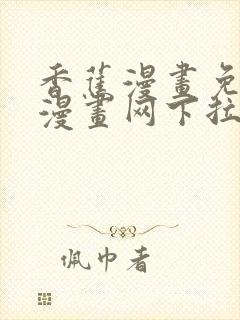 香蕉漫畫免
漫畫网下拉
佩巾者